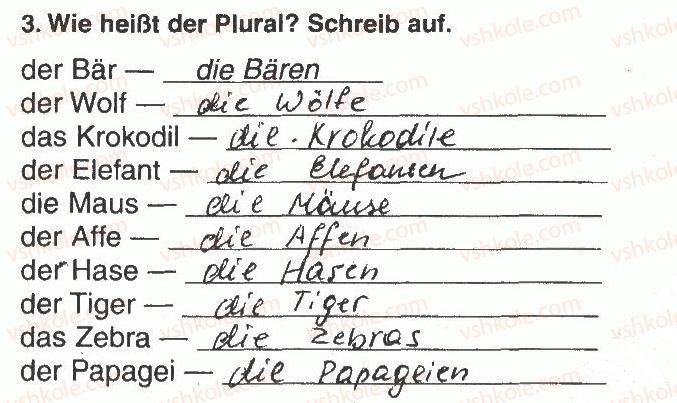 3. Wie heißt der Plural? Schreib auf.
der Bär — die Bären
der Wolf — die Wölfe
das Krokodil — die Krokodile
der Elefant — die Elefanten
die Maus — die Mäuse
der Affe — die Affen
der Hase — die Hasen
der Tiger — die Tiger
das Zebra — die Zebras
der Papagei — die Papageien
vshkole.com